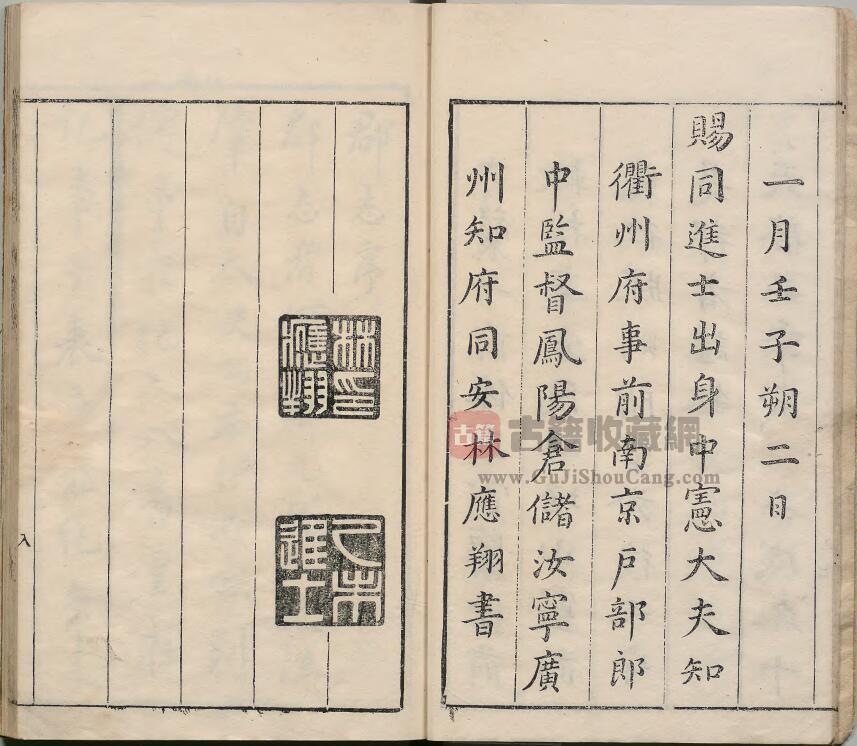 一月壬子朔二日
賜同進士出身中憲大夫知
衢州府事前南京戶部郎
中監督鳳陽倉儲汝寧廣
州知府同安林應翔書
林印應翔
己未進士
八
古籍
古籍收藏網
www.GuJiShouCang.com